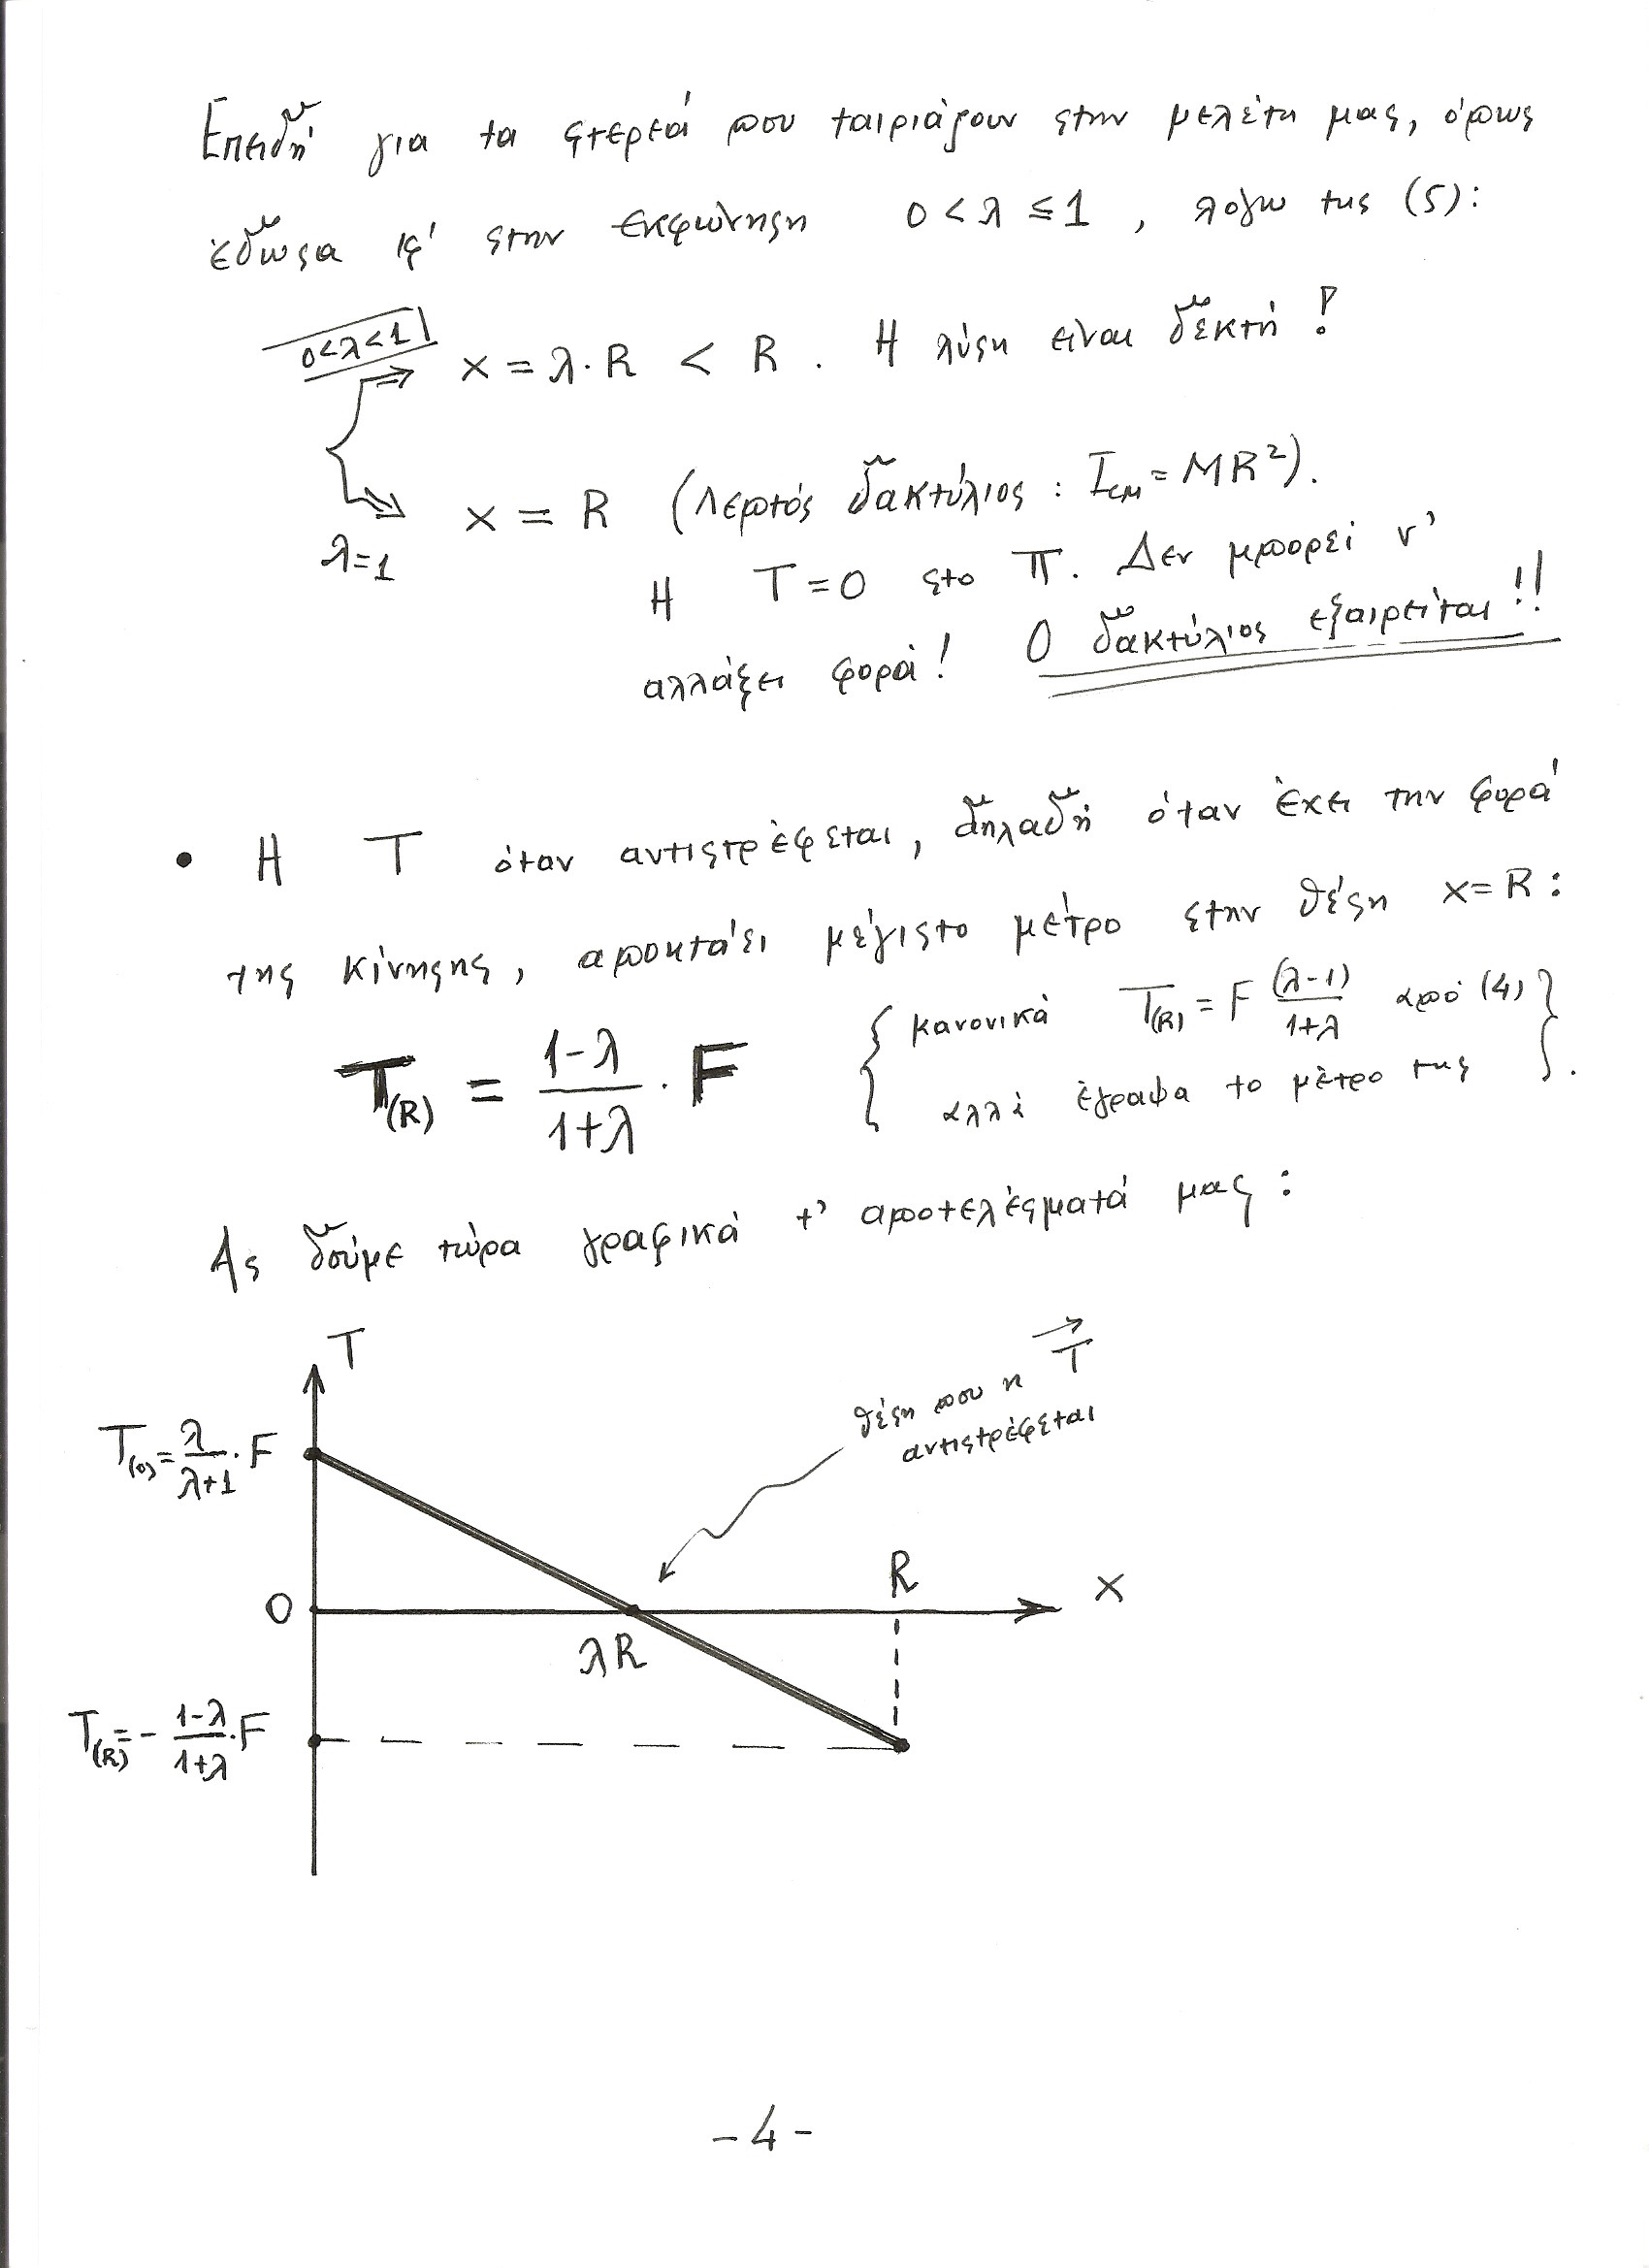 Επειδή για τα στερεά που ταιριάζουν στην μελέτη μας, όπως
έδωσα κι' στην εκφώνηση 0 < λ ≤ 1 , λόγω της (5):
0<λ<1 x = λ·R < R . Η λύση είναι δεκτή !
λ=1 x = R (Λεπτός δακτύλιος : I_cm = MR²).
Η T = 0 στο Π. Δεν μπορεί ν'
αλλάξει φορά! Ο δακτύλιος εξαιρείται!!
• Η T όταν αντιστρέφεται, δηλαδή όταν έχει την φορά
της κίνησης, αποκτάει μέγιστο μέτρο στην θέση x=R:
T(R) = (1-λ)/(1+λ) · F { κανονικά T(R) = F (λ-1)/(1+λ) από (4)
αλλά έγραψα το μέτρο της } .
Ας δούμε τώρα γραφικά τ' αποτελέσματά μας :
T
θέση που η T⃗
αντιστρέφεται
T(0) = λ/(λ+1) · F
R
0
x
λR
T(R) = - (1-λ)/(1+λ) · F
- 4 -